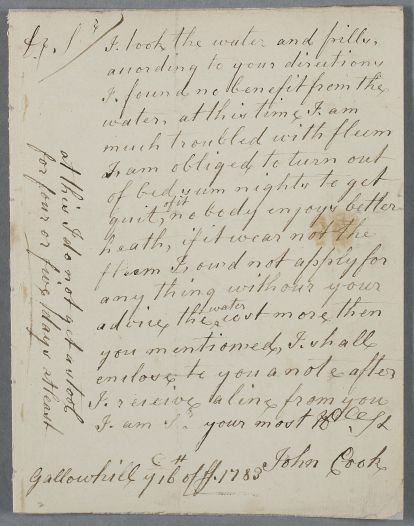 Dr. Sr
I. took the water and pills,
acording to your directions
I. found no benefit from the
water, at this time I. am
much troubled with fleem
I. am obliged to turn out
of bed sum nights to get
quit, of it nobody enjoys better
heath, if it wear not the
fleem I. soud not apply for
any thing withour your
advice the water cost more then
you mentioned, I. shall
enclose to you a note after
I. reseive a line from you
I. am Sr. your most
John Cook
Gallowhill 16th of 1783
at this I do not get a stool
for four or five days at least